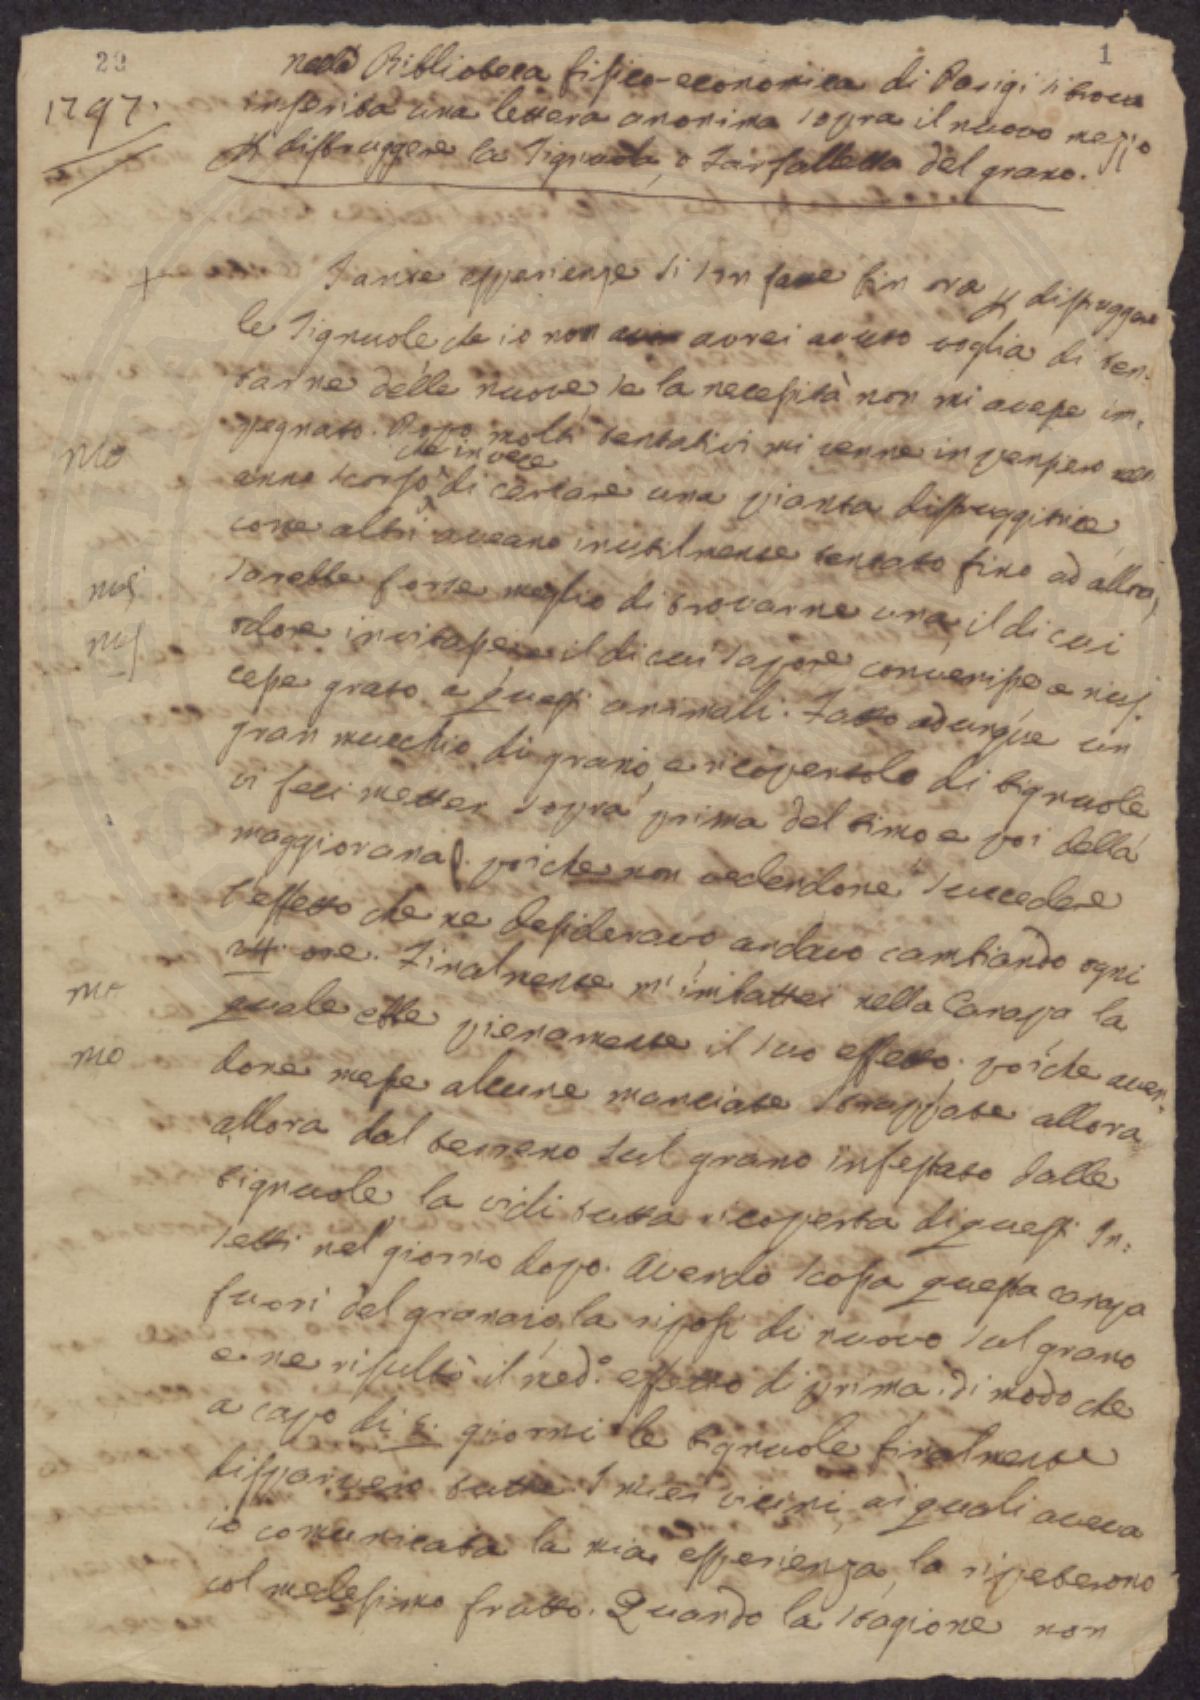 29
1
1797.
nella Biblioteca fisico-economica di Parigi si trova
inserita una lettera anonima sopra il nuovo mezzo
distruggere la Tignuola, o Farfalletta del grano.
Tante esperienze si son fatte fin ora distruggere
le Tignuole che io non avrei avuto voglia di ten-
tarne delle nuove, se la necessità non mi avesse im-
pegnato. Dopo molti tentativi mi venne in pensiero nell'
che invece
anno scorso di cercare una pianta distruggitrice,
come altri aveano inutilmente tentato fino ad allora,
sarebbe forse meglio di trovarne una, il di cui
odore invitasse, e il di cui sapore convenisse e riu-
cesse grato a questi animali. Fatto adunque un
gran mucchio di grano, e ricopertolo di tignuole
vi feci metter sopra prima del timo, e poi della
maggiorana. poiche non vedendone succedere
l'effetto che ne desideravo, andavo cambiando ogni
24. ore. Finalmente m'imbattei nella Canapa la
quale ebbe pienamente il suo effetto; poiche aven-
done messe alcune manciate strappate allora
allora dal terreno sul grano infestato dalle
tignuole, la vidi tutta ricoperta di questi In-
setti nel giorno dopo. Avendo scossa questa canapa
fuori del granaio, la riposi di nuovo sul grano
e ne risultò il med.o effetto di prima. di modo che
a capo di 5. giorni le tignuole finalmente
disparvero tutte. I miei vicini, ai quali aveva
io comunicata la mia esperienza, la ripeterono
col medesimo frutto. Quando la stagione non